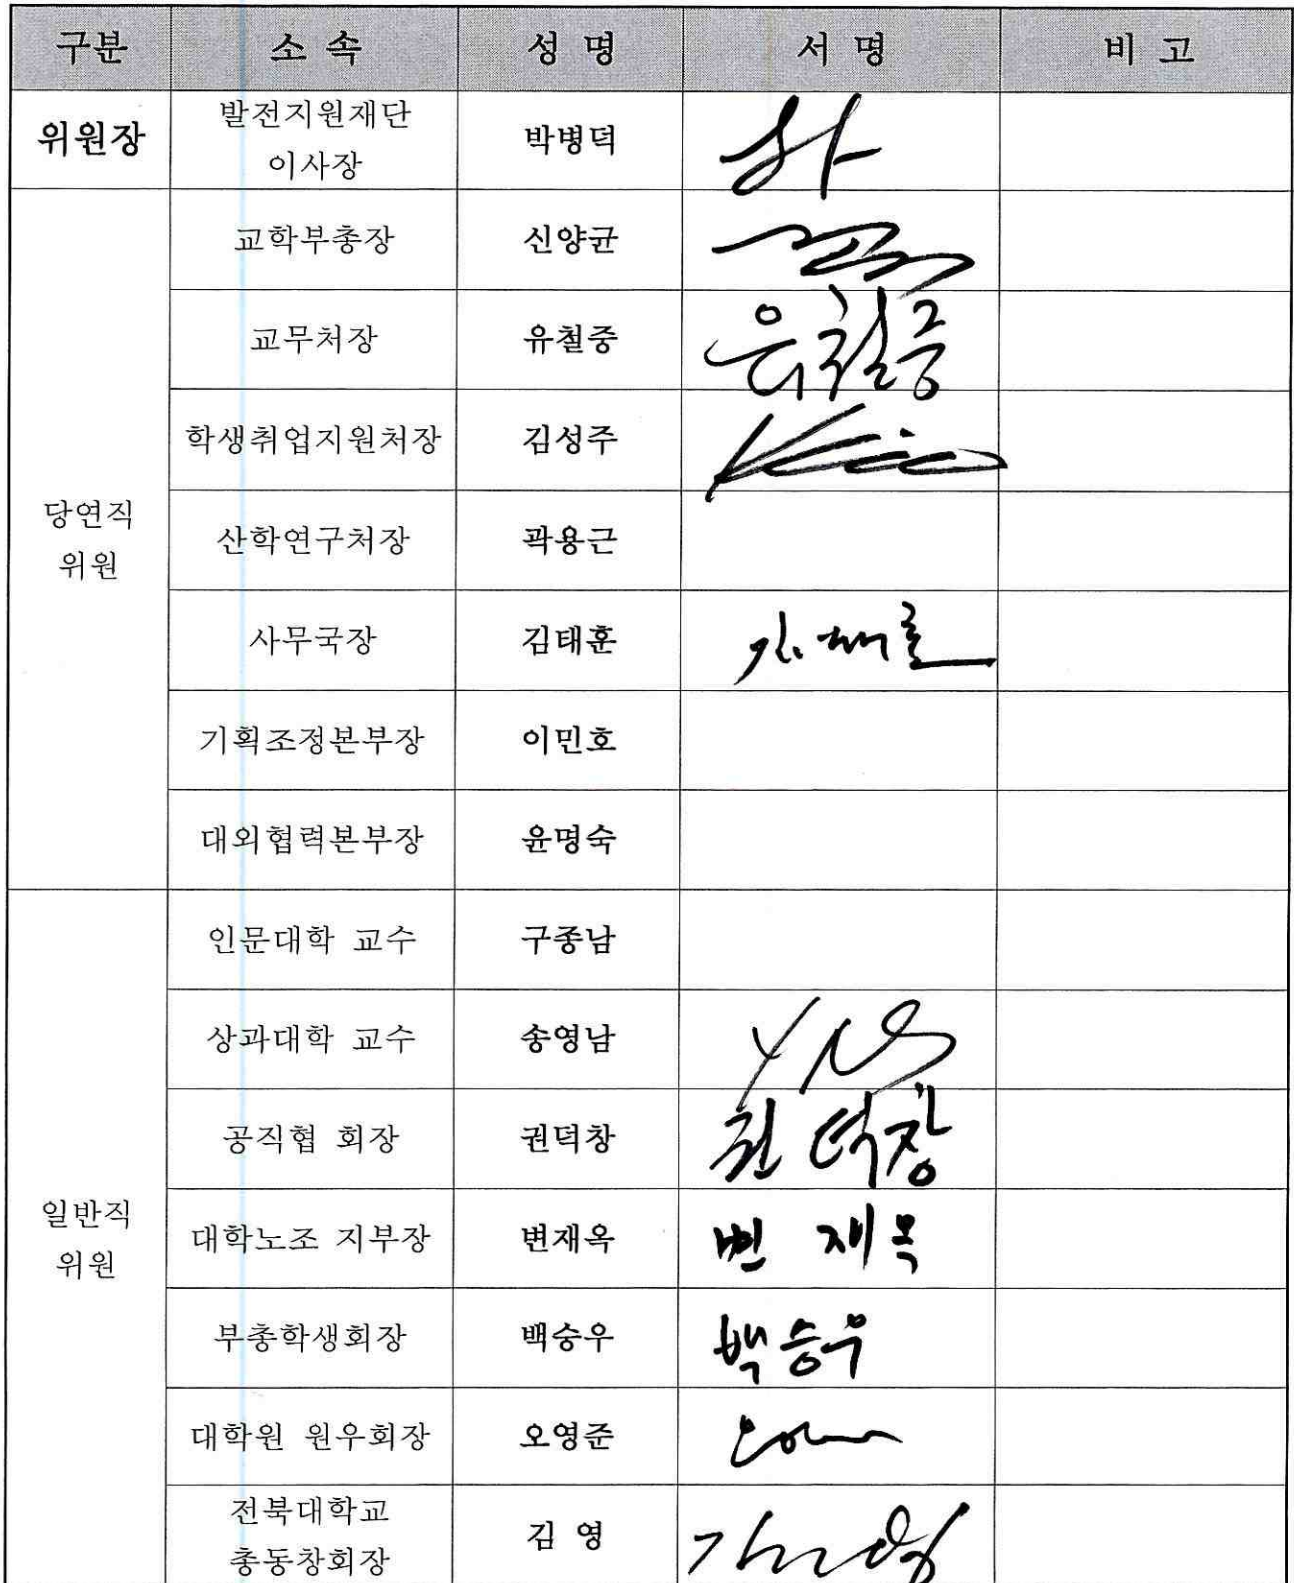 구분 소 속 성 명 서 명 비 고
위원장
발전지원재단
이사장
박병덕
당연직
위원
교학부총장 신양균
교무처장 유철중 유철중
학생취업지원처장 김성주
산학연구처장 곽용근
사무국장 김태훈
기획조정본부장 이민호
대외협력본부장 윤명숙
일반직
위원
인문대학 교수 구종남
상과대학 교수 송영남
공직협 회장 권덕창 권덕창
대학노조 지부장 변재옥 변재옥
부총학생회장 백승우 백승우
대학원 원우회장 오영준
전북대학교
총동창회장
김 영